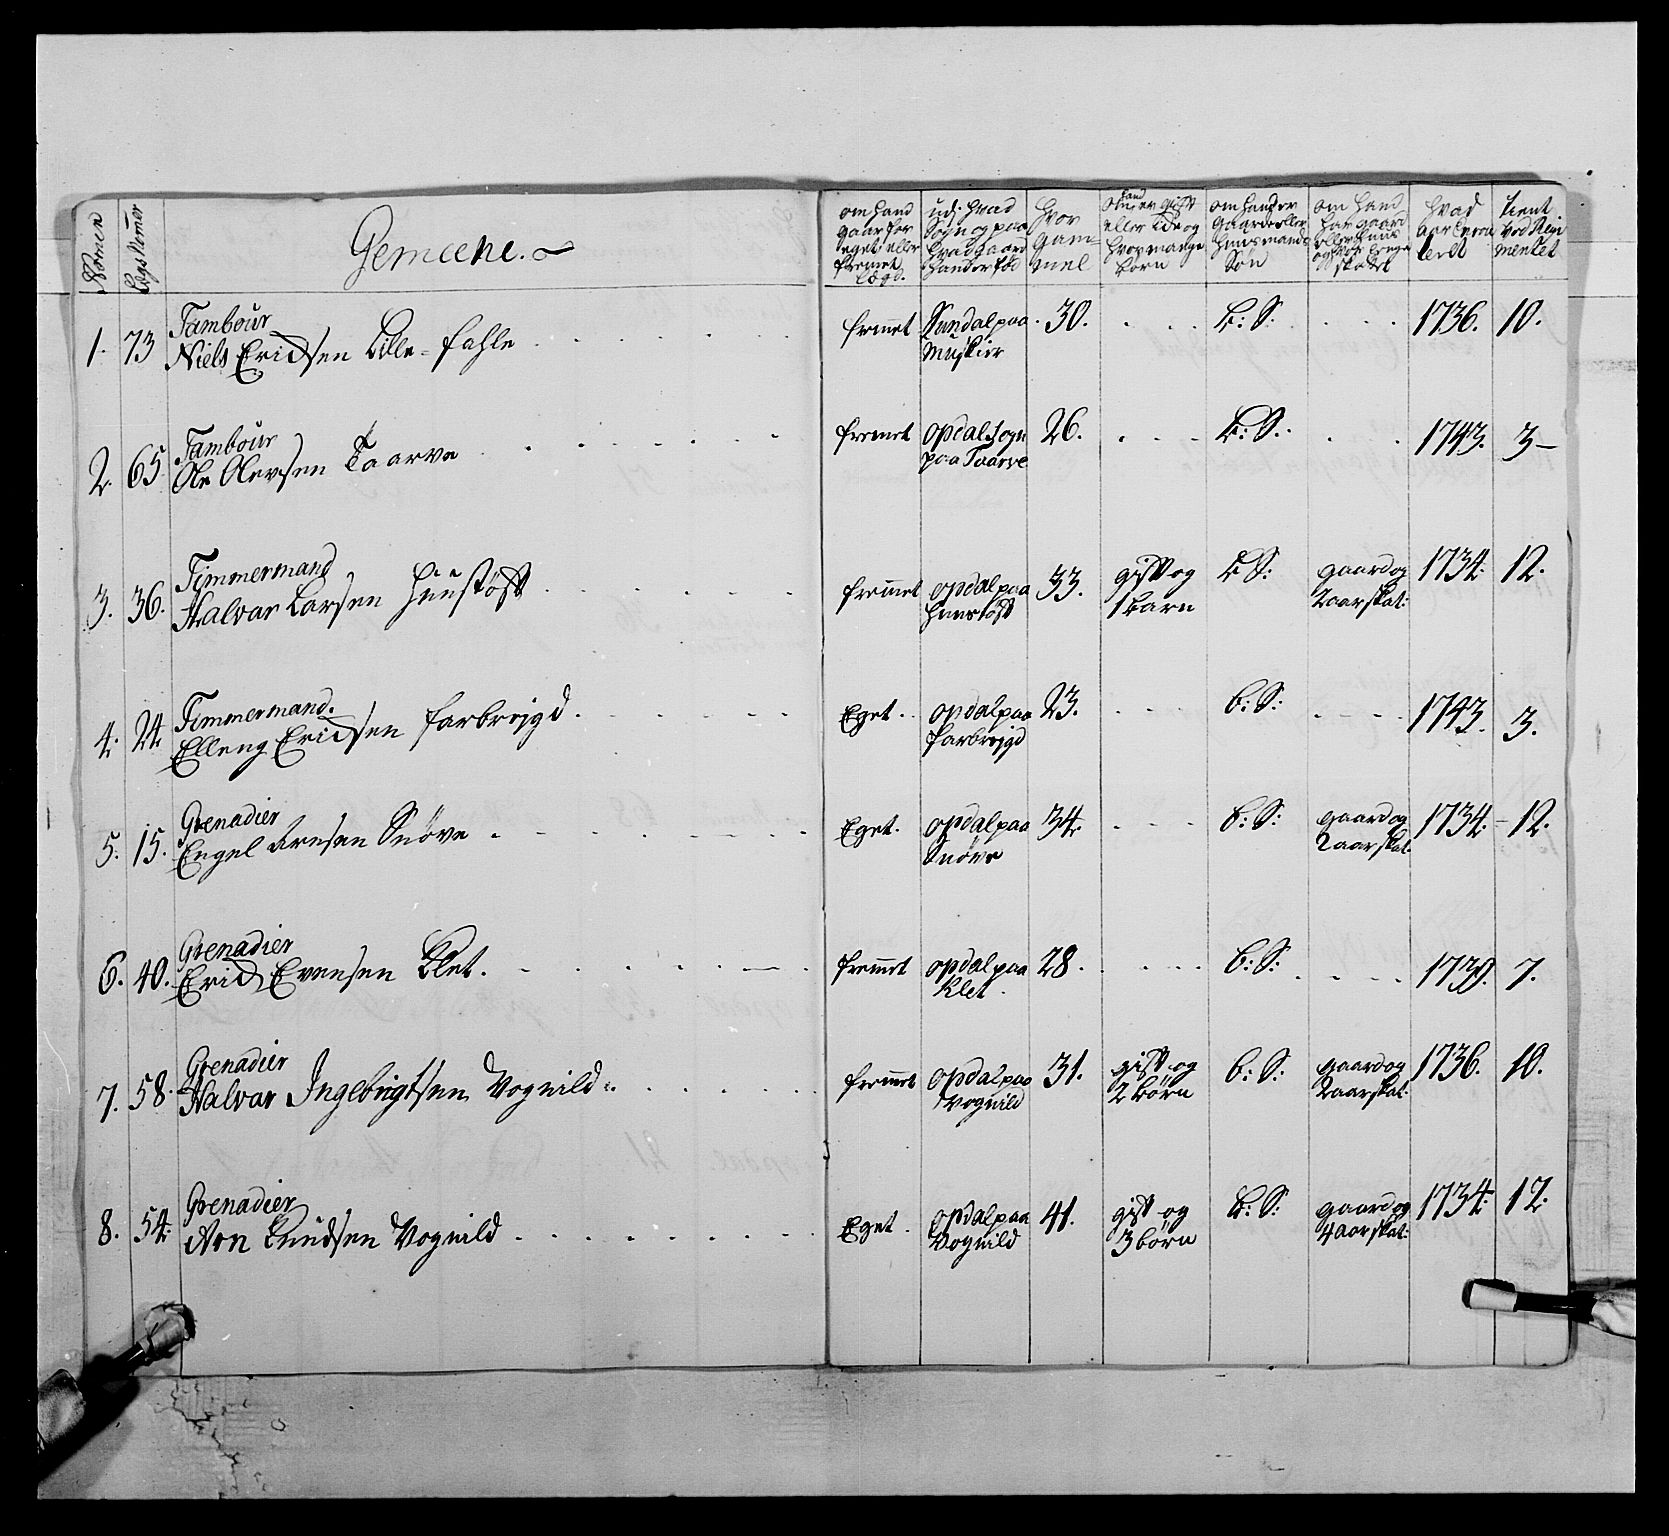 Gemeene.
om hand gaar for eget eller fremet Lægd.
udj hvad Sogn og paa hvad gaard hand er fød
hvor gam- mel
hand eller Ede og hvor mange børn
om hand er Gaard eller huusmands Søn
om hand har gaard eller huus
hvad aar
tient ved Regi mentet
1. 73 Tambour
Niels Erichsen Lille-fahle fremet Sundal paa Muskier 30. b: S: 1736. 10.
2. 65. Tambour
Ole Olevsen Taarve fremet Opdal Sogn paa Taarve 26. b: S: 1743. 3
3. 36. Timmermand
Halvar Larsen Huustøft fremet Opdal paa Huustøft 33. gift og 1 barn b S: gaard og 2 aar skat: 1734. 12.
4. 24 Timmermand.
Elleng Erichsen farbrejgd. Eget. Opdal paa farbrejgd 23. b: S: 1743. 3.
5. 15. Grenadier
Engel Arnsen Snöve Eget. Opdal paa Snöve 34. b: S: gaard og 2 aar skat. 1734. 12.
6. 40. Grenadier
Erich Evensen Klet. fremet Opdal paa Klet. 28. b: S: 1739. 7.
7. 58. Grenadier
Halvar Ingebrigtsen Vognild. fremet Opdal paa Vognild 31. gift og 2 börn b: S: gaard og 2 aar skat: 1736. 10.
8. 54. Grenadier
Arn Knudsen Vognild Eget. Opdal paa Vognild 41. gift og 3 börn b: S: gaard og 4 aar skat: 1734. 12.